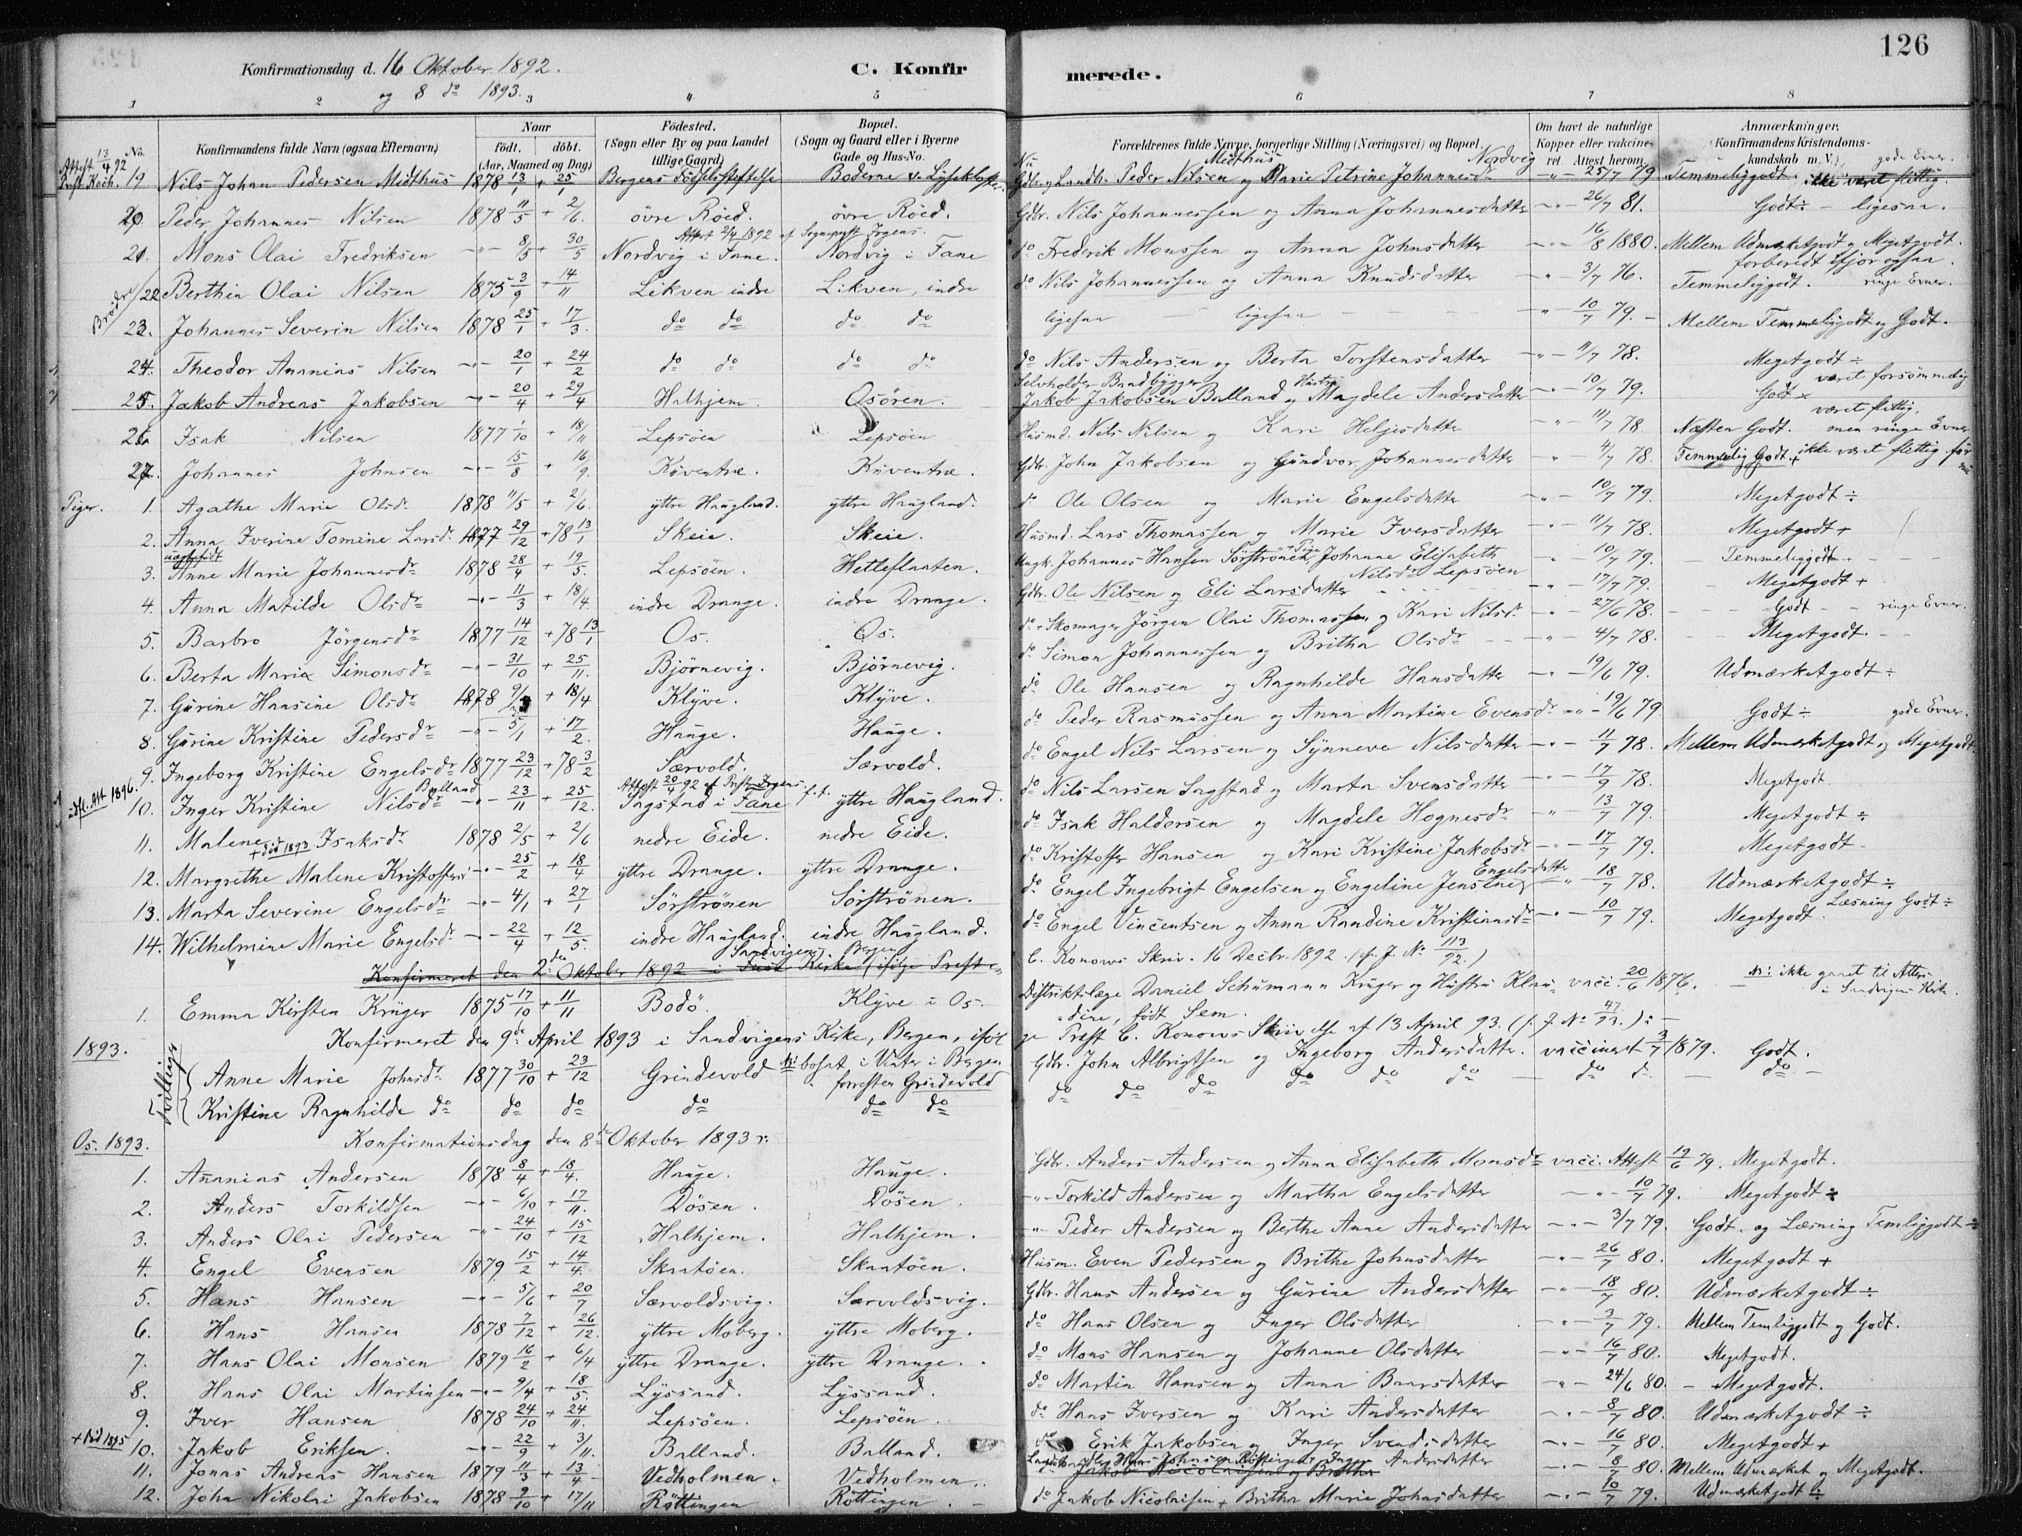 126
Konfirmationsdag d. 16 Oktober 1892.
og 8 do 1893.
C. Konfirmerede.
1 2 3 4 5 6 7 8
No. Konfirmandens fulde Navn (ogsaa Efternavn) Naar Født. døbt. (Aar, Maaned og Dag) Fødested. (Sogn eller By og paa Landet tillige Gaard) Bopæl. (Sogn og Gaard eller i Byerne Gade og Hus-No. Forældrenes fulde Navne, borgerlige Stilling (Næringsvei) og Bopæl. Om havt de naturlige Kopper eller vaccineret. Attest herom. Anmærkninger. (Konfirmandens Kristendomskundskab m. V.)
19 Nils Johan Pedersen Midthus 1878 13/1 + 25/1 Bergens Födselsstiftelse Peder Nilsen Midthus og Marie Petrine Johannesdr 25/7 79. Temmeliggodt. gode Evner. ikke været flittig.
20. Peder Johannes Nilsen 1878 11/5 + 2/6. övre Röed. övre Röed. Gdbr. Nils Johannessen og Anna Johannesdatter 26/7 81. Godt ÷ ligesaa.
21. Mons Olai Fredriksen 8/5 + 30/5 Nordvig i Fane. Nordvig i Fane do Frederik Monssen og Anna Johnsdatter 16/8 1880. Mellem Udmærketgodt og Megetgodt. forberedt ifjor ogsaa.
Brødre
22. Berthin Olai Nilsen 1875 3/9 + 14/11 Likven indre Likven, indre do Nils Johannessen og Anna Knudsdatter 3/7 76. Temmeliggodt. ringe Evner.
23. Johannes Severin Nilsen 1878 25/1 + 17/3. do do do do ligesaa ligesaa 10/7 79. Mellem Temmeliggodt og Godt.
24. Theodor Ananias Nilsen 20/1 + 24/2 do do do do do Nils Andersen og Berta Torstensdatter 11/7 78. Megetgodt ÷
25. Jakob Andreas Jakobsen 20/4 + 29/4 Halhjem. Osören. Jakob Jakobsen Balland og Hustru Magdele Andersdatter 10/7 79. Godt været forsömmelig
26. Isak Nilsen 1877 1/10 + 18/11 Lepsöen Lepsöen Husmd. Nils Nilsen og Kari Heljesdatter 11/7 78 Næsten Godt. været flittig. men ringe Evner
27. Johannes Johnsen 15/8 + 16/9. Kuventræ. Kuventræ. Gdbr. John Jakobsen og Gundvor Johannesdatter 4/7 78. Temmelig Godt. + ikke været flittig för nu
Piger. 1. Agathe Marie Olsdr 1878 11/5 + 2/6. yttre Haugland. yttre Haugland. do Ole Olsen og Marie Engelsdatter 10/7 79. Megetgodt ÷
2. Anna Iverine Tomine Larsdr 1877 29/12 + 78 13/1 Skeie. Skeie. Husmd. Lars Thomassen og Marie Iversdatter 11/7 78. Megetgodt +
uægtefödt
3. Anne Marie Johannesdr 1878 28/4 + 19/5. Lepsöen. Hetleflaaten. Ungk. Johannes Hansen Sörströnen, Pige Johanne Elisabeth Nilsdr Lepsöen 10/7 79. Temmeliggodt.
4. Anna Matilde Olsdr 11/3 + 18/4 indre Drange. indre Drange. Gdbr. Ole Nilsen og Eli Larsdatter 17/7 79. Megetgodt +
5. Barbro Jörgensdr 1877 14/12 + 78 13/1 Os. Os. do Skomager Jörgen Olai Thomassen og Kari Nilsdr 27/6 78. Godt ringe Evner.
6. Berta Maria Simonsdr 31/10 + 25/11. Bjørnevig. Bjørnevig. do Simon Johannessen og Britha Olsdr 4/7 78. Megetgodt.
7. Gurine Hansine Olsdr 1878 9/3 + 18/4 Klyve. Klyve. do Ole Hansen og Ragnhilde Hansdatter 19/6 79. Udmærketgodt ÷
8. Gurine Kristine Pedersdr 5/1 + 17/2. Hauge. Hauge. do Peder Rasmussen og Anna Martine Evensdr 19/6 79 Godt ÷ gode Evner.
9. Ingeborg Kristine Engelsdr 1877 23/12 + 78 3/2 Særvold. Særvold. do Engel Nils Larsen og Synneve Nilsdatter 11/7 78. Mellem Udmærketgodt og Megetgodt
10. Inger Kristine Nilsdr Balland 23/11 + 25/12. Sagstad i Fane yttre Haugland. do Nils Larsen Sagstad og Marta Svensdatter 17/9 78. Megetgodt.
11. Malene Isaksdr 1878 2/5 + 2/6 nedre Eide. nedre Eide. do Isak Haldorsen og Magdele Hognesdr 13/7 79. Megetgodt ÷
+ död 1893
12. Margrethe Malene Kristoffersdr 25/2 + 18/4 yttre Drange. yttre Drange. do Kristoffer Hansen og Kari Kristine Jakobsdr 17/7 79. Megetgodt
13. Marta Severine Engelsdr 4/1 + 27/1 Sörströnen Sörströnen. do Engel Ingebrigt Engelsen og Engeline Jensine Engelsdatter 18/7 78. Udmærketgodt ÷
14. Wilhelmine Marie Engelsdr 22/4 + 12/5. indre Haugland. indre Haugland. do Engel Vincentsen og Anna Randine Kristiansdr 10/7 79. Megetgodt. Læsning Godt ÷
Konfirmeret den 2den Oktober 1892 i Sandvigens Kirke, Bergen (ifölge Prest C. Konows Skriv. 16 Decbr. 1892. (cf. J. No 113/92.)
1. Emma Kirsten Krüger 1875 17/10 + 11/11 Bodö. Klyve i Os. Distriktslæge Daniel Schumann Krüger og Hustru Klaudine, födt Sem. vacc. 20/6 1876. NB: ikke gaaet til Alters i Sandvigens Kirke.
1893. Konfirmeret den 9de April 1893 i Sandvigens Kirke, Bergen, ifölge Prest C. Konows Skrivelse af 13 April 93. (J. No 47/93.)
Tvillinger
Anne Marie Johnsdr 1877 30/10 + 23/12 Grindevold bosat i Vinter i Bergen forresten Grindevold Gdbr. John Albrigtsen og Ingeborg Andersdatter. vaccineret 3/7 1879. Godt.
Kristine Ragnhilde do do do do do do do do do do do do do do do
Os. 1893. Konfirmationsdag den 8de Oktober 1893:
1. Ananias Andersen 1878 8/4 + 18/4. Hauge. Hauge. Gdbr. Anders Andersen og Anna Elisabeth Monsdr vacc. Attest 19/6 79. Megetgodt.
2. Anders Torkildsen 6/10 + 17/11. Dösen. Dösen. Torkild Andersen og Martha Engelsdatter 10/7 79. Megetgodt ÷
3. Anders Olai Pedersen 24/10 + 15/12 Halhjem. Halhjem. Peder Andersen og Berthe Anne Andersdatter 3/7 79. Godt. og Læsning Temliggodt ÷
4. Engel Evensen 1879 15/2 + 14/4. Skaatöen. Skaatöen. Husm. Even Pedersen og Brithe Johnsdatter 26/7 80. Megetgodt +
5. Hans Hansen 5/6 + 20/7 Særvoldsvig. Særvoldsvig. Gdbr. Hans Andersen og Gurine Andersdatter 18/7 80. Udmærketgodt ÷
6. Hans Hansen 1878 7/12 + 26/12. yttre Moberg. yttre Moberg. do Hans Olsen og Inger Olsdatter 3/7 79. Mellem Temliggodt og Godt.
7. Hans Olai Monsen 1879 16/2 + 6/4 yttre Drange. yttre Drange. do Mons Hansen og Johanne Olsdatter 16/7 80. Megetgodt.
8. Hans Olai Martinsen 9/4 + 18/5. Lyssand. Lyssand. do Martin Hansen og Anna Baarsdatter 24/6 80. Megetgodt.
9. Iver Hansen 1878 24/10 + 24/11. Lepsöen. Lepsöen. do Hans Iversen og Kari Andersdatter 8/7 80. Udmærketgodt ÷
+ död 1895 10. Jakob Eriksen. 22/9 + 3/11. Balland. Balland. do Erik Jakobsen og Inger Svendsdatter 16/7 80. Megetgodt +
11. Jonas Andreas Hansen 1879 11/3 + 13/4 Vedholmen. Vedholmen. Hans Johnsen Röttingen, Inger Andersdatter 8/7 80. Mellem Udmærket og Megetgodt.
12. John Nikolai Jakobsen 1878 9/10 + 17/11 Röttingen Röttingen. do Jakob Nicolaisen + Britha Marie Johnsdatter 10/7 79. Udmærketgodt ÷